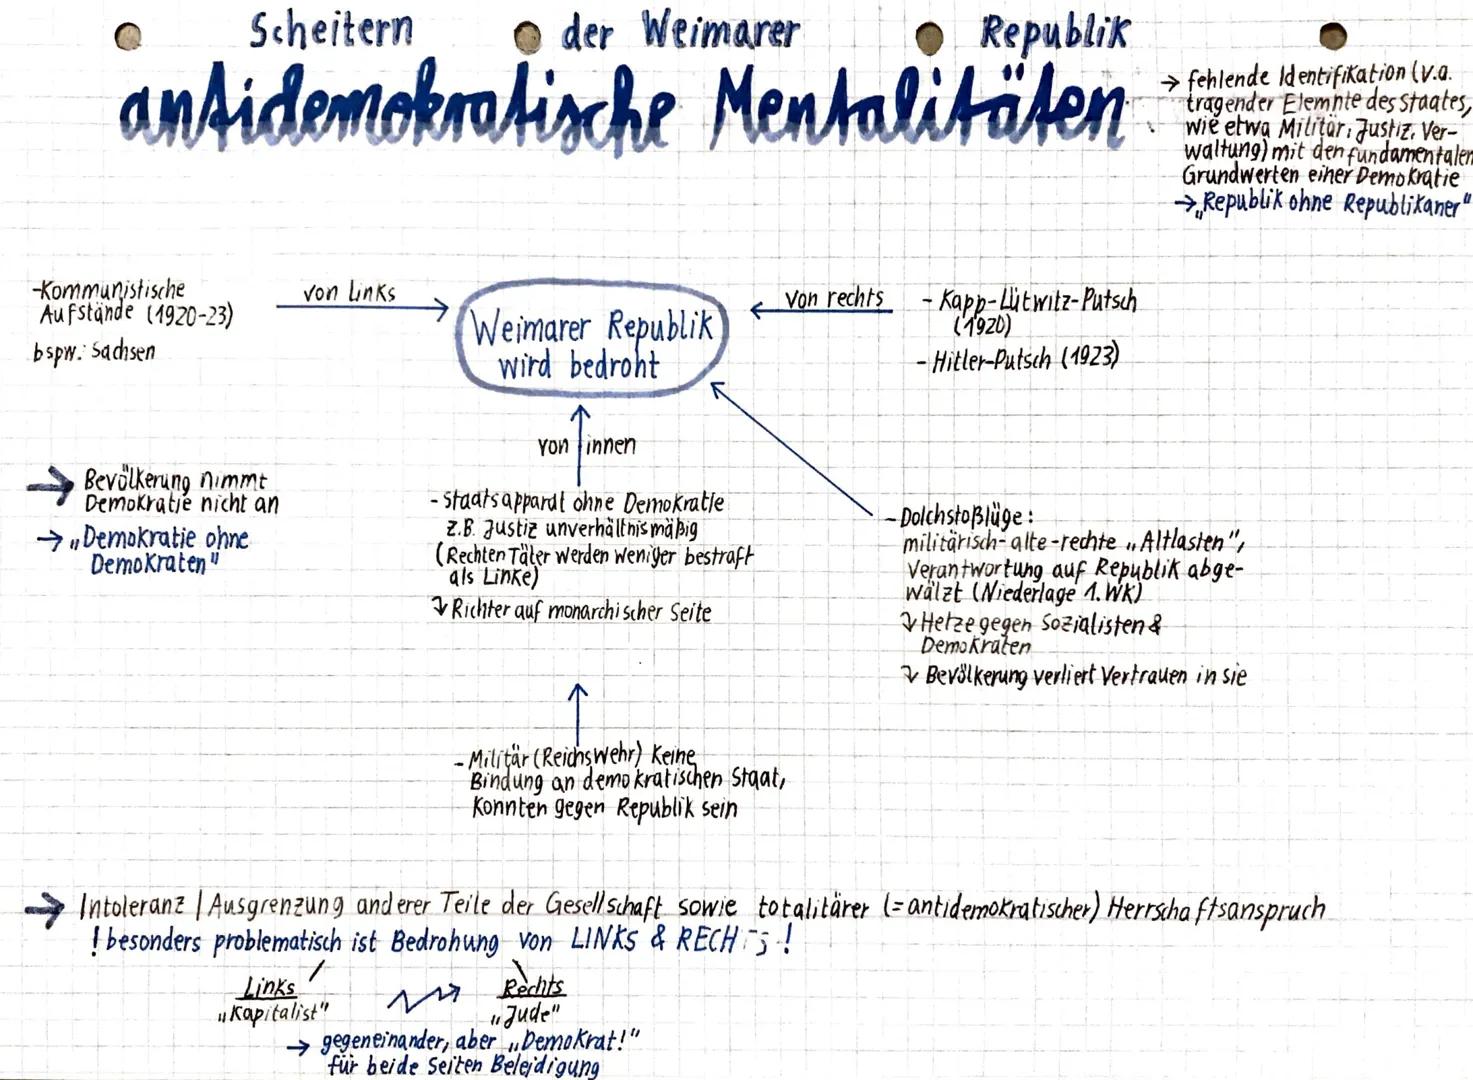 Scheitern der Weimarer Republik
antidemokratische Mentalitäten
→ fehlende Identifikation (v.a.
tragender Elemnte des Staates,
wie etwa Militär, Justiz, Ver-
waltung) mit den fundamentalen
Grundwerten einer Demokratie
→ „Republik ohne Republikaner"
-Kommunistische
Aufstände (1920-23)
bspw. Sachsen
von Links
Weimarer Republik
wird bedroht
von rechts
- Kapp-Lütwitz-Putsch
(1920)
- Hitler-Putsch (1923)
von innen
→ Bevölkerung nimmt
Demokratie nicht an
→ „Demokratie ohne
Demokraten"
- Staatsapparat ohne Demokratie
z.B. Justiz unverhältnismäßig
(Rechten Täter werden weniger bestraft
als Linke)
↳ Richter auf monarchischer Seite
- Dolchstoßlüge:
militärisch-alte-rechte „Altlasten",
Verantwortung auf Republik abge-
wälzt (Niederlage 1. WK)
↳ Hetze gegen Sozialisten &
Demokraten
↳ Bevölkerung verliert Vertrauen in sie
- Militär (Reichswehr) keine
Bindung an demokratischen Staat,
konnten gegen Republik sein
→ Intoleranz / Ausgrenzung anderer Teile der Gesellschaft sowie totalitärer (=antidemokratischer) Herrschaftsanspruch
! besonders problematisch ist Bedrohung von LINKS & RECHTS !
Links Rechts
„Kapitalist" „Jude"
→ gegeneinander, aber „Demokrat!"
für beide Seiten Beleidigung